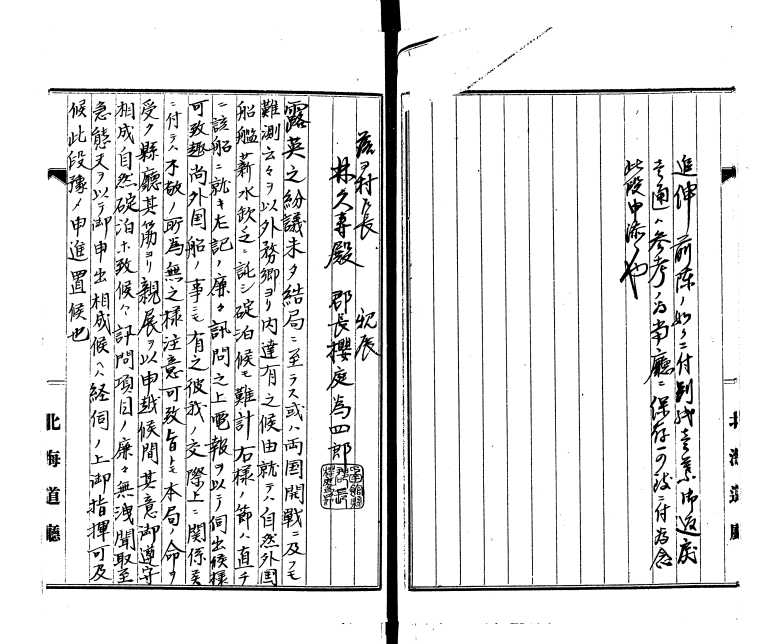 追伸 前陳ノ如クニ付別紙壱葉御返戻
壱通ハ参考ノ為当庁ニ保存可致ニ付為念
此段申添候也
村戸長 親展
林久寿殿 郡長櫻庭為四郎
露英之紛議未タ結局ニ至ラス或ハ両国開戦ニ及フモ
難測云々ヲ以外務卿ヨリ内達有之候由就テハ自然外国
船艦薪水欠乏ニ託シ碇泊候モ難計右様ノ節ハ直チ
ニ該船ニ就キ左記ノ廉々訊問之上電報ヲ以テ伺出候様
可致趣尚外国船ノ事ニモ有之彼我ノ交際上ニ関係
ニ付テハ不敬ノ所為無之様注意可致旨トモ本局ノ命ヲ
受ケ縣廳其筋ヨリ親展ヲ以申越候間其意御遵守
相成自然碇泊等致候ハヽ訊問項目ノ廉々無洩聞取至
急態夫ヲ以テ御申出相成候ハヽ経伺ノ上御指揮可及
候此段豫メ申進置候也
北海道廳
北海道廳